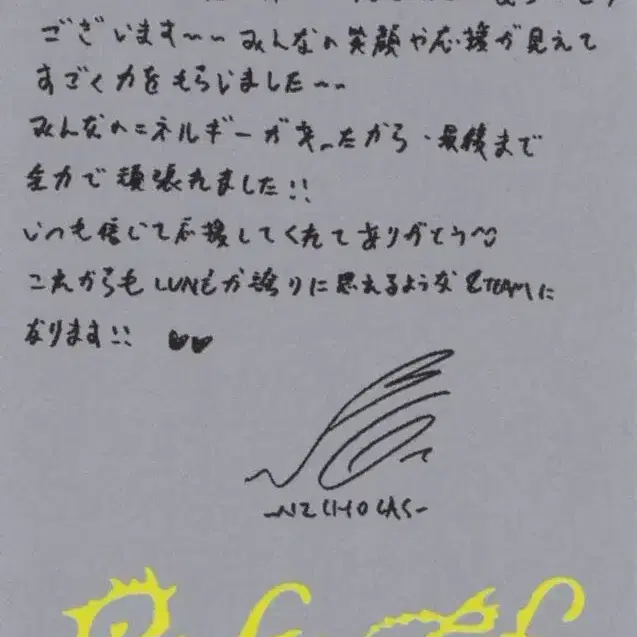 ございます〜〜みんなの笑顔や応援が見えて
すごく力をもらいました〜〜
みんなのエネルギーがあったから、最後まで
全力で頑張れました!!
いつも信じて応援してくれてありがとう♡
これからもLUNÉが誇りに思えるような&TEAMに
なります!! ♥♥
-NICHOLAS-